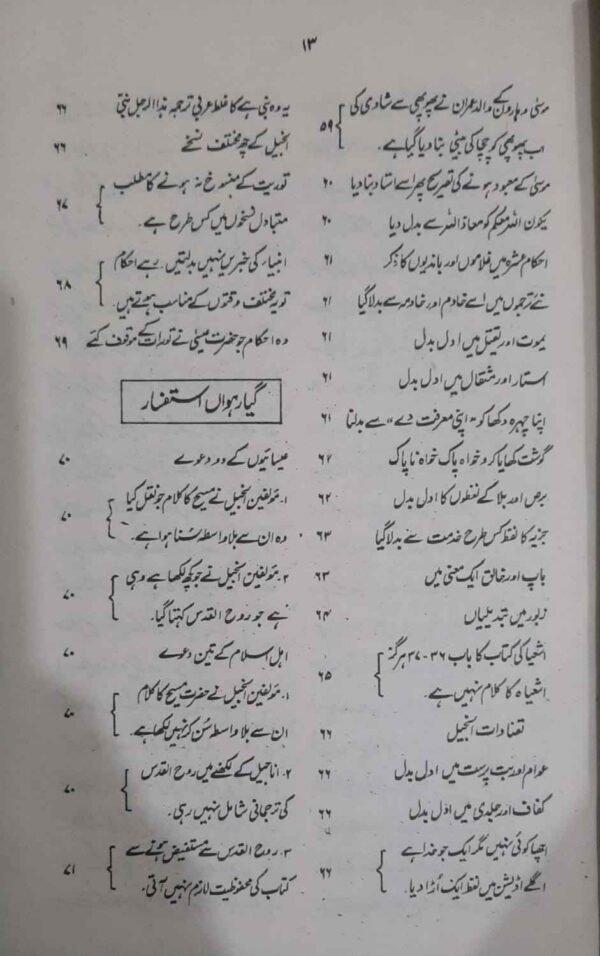 ۱۳
موسیٰ و ہارون کے والد عمران نے پھوپھی سے شادی کی
اب پھوپھی کو چچا کی بیٹی بنا دیا گیا ہے۔ ۵۹
موسیٰ کے معبود ہونے کی تصریح پھر اسے استاد بنا دیا ۶۰
یکون اللہ معکم کو معاذ اللہ سے بدل دیا ۶۰
احکام عشرہ میں غلاموں اور باندیوں کا ذکر ۶۱
نئے ترجموں میں اسے خادم اور خادمہ سے بدلا گیا ۶۱
یموت اور یقتل میں ادل بدل ۶۱
استار اور مثقال میں ادل بدل ۶۱
اپنا چہرہ دکھا کو "اپنی معرفت دے" سے بدلنا ۶۱
گوشت کھایا کرو خواہ پاک خواہ ناپاک ۶۲
برص اور بلا کے لفظوں کا ادل بدل ۶۲
جزیہ کا لفظ کس طرح خدمت سے بدلا گیا ۶۳
باپ اور خالق ایک معنی میں ۶۳
زبور میں تبدیلیاں ۶۴
اشعیا کی کتاب کا باب ۳۶-۳۷ ہرگز
اشعیاہ کا کلام نہیں ہے۔ ۶۵
تضادات انجیل ۶۶
عوام اور بت پرست میں ادل بدل ۶۶
کفاف اور جلدی میں ادل بدل ۶۶
اچھا کوئی نہیں مگر ایک جو خدا ہے
اگلے اڈیشن میں لفظ ایک اڑا دیا۔ ۶۶
یہ وہ نبی ہے کا غلط عربی ترجمہ ہذا الرجل نبی ۶۶
انجیل کے چھ مختلف نسخے ۶۶
توریت کے منسوخ نہ ہونے کا مطلب
متبادل نسخوں میں کس طرح ہے۔ ۶۷
انبیاء کی خبریں نہیں بدلتیں۔ رہے احکام
تو یہ مختلف وقتوں کے مناسب ہوتے ہیں۔ ۶۸
وہ احکام جو حضرت عیسیٰ نے تورات کے موقف کئے ۶۹
گیارہواں استفسار
عیسائیوں کے دو دعوے ۷۰
۱۔ مؤلفین انجیل نے مسیح کا کلام جو نقل کیا
وہ ان سے بلا واسطہ سُنا ہوا ہے۔ ۷۰
۲۔ مؤلفین انجیل نے جو کچھ لکھا ہے وہی
ہے جو روح القدس کہتا گیا۔ ۷۰
اہل اسلام کے تین دعوے ۷۰
۱۔ مؤلفین انجیل نے حضرت مسیح کا کلام
ان سے بلا واسطہ سُن کر نہیں لکھا ہے۔ ۷۰
۲۔ اناجیل کے لکھنے میں روح القدس
کی ترجمانی شامل نہیں رہی۔ ۷۰
۳۔ روح القدس سے مستفیض ہونے سے
کتاب کی محفوظیت لازم نہیں آتی۔ ۷۱